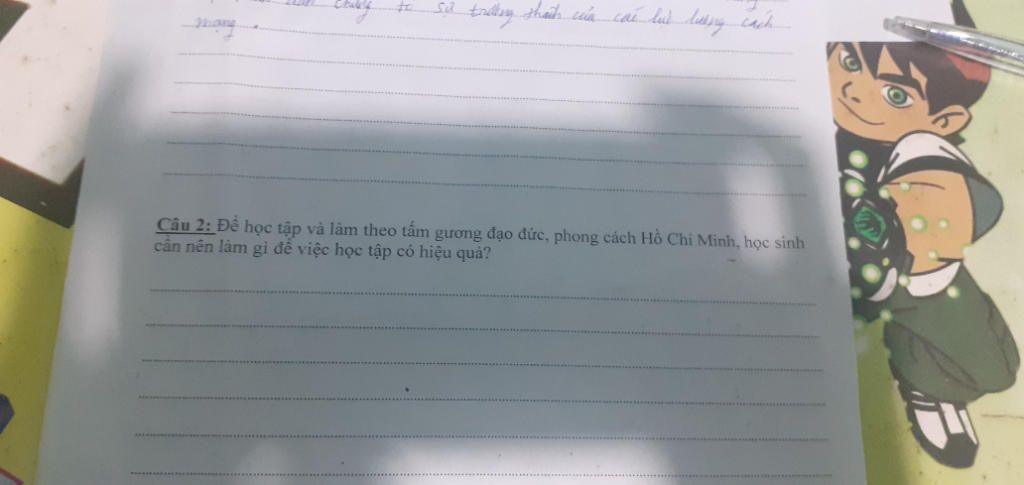 chứng tỏ sự trưởng thành của các lực lượng cách
mạng.
Câu 2: Để học tập và làm theo tấm gương đạo đức, phong cách Hồ Chí Minh, học sinh
cần nên làm gì để việc học tập có hiệu quả?